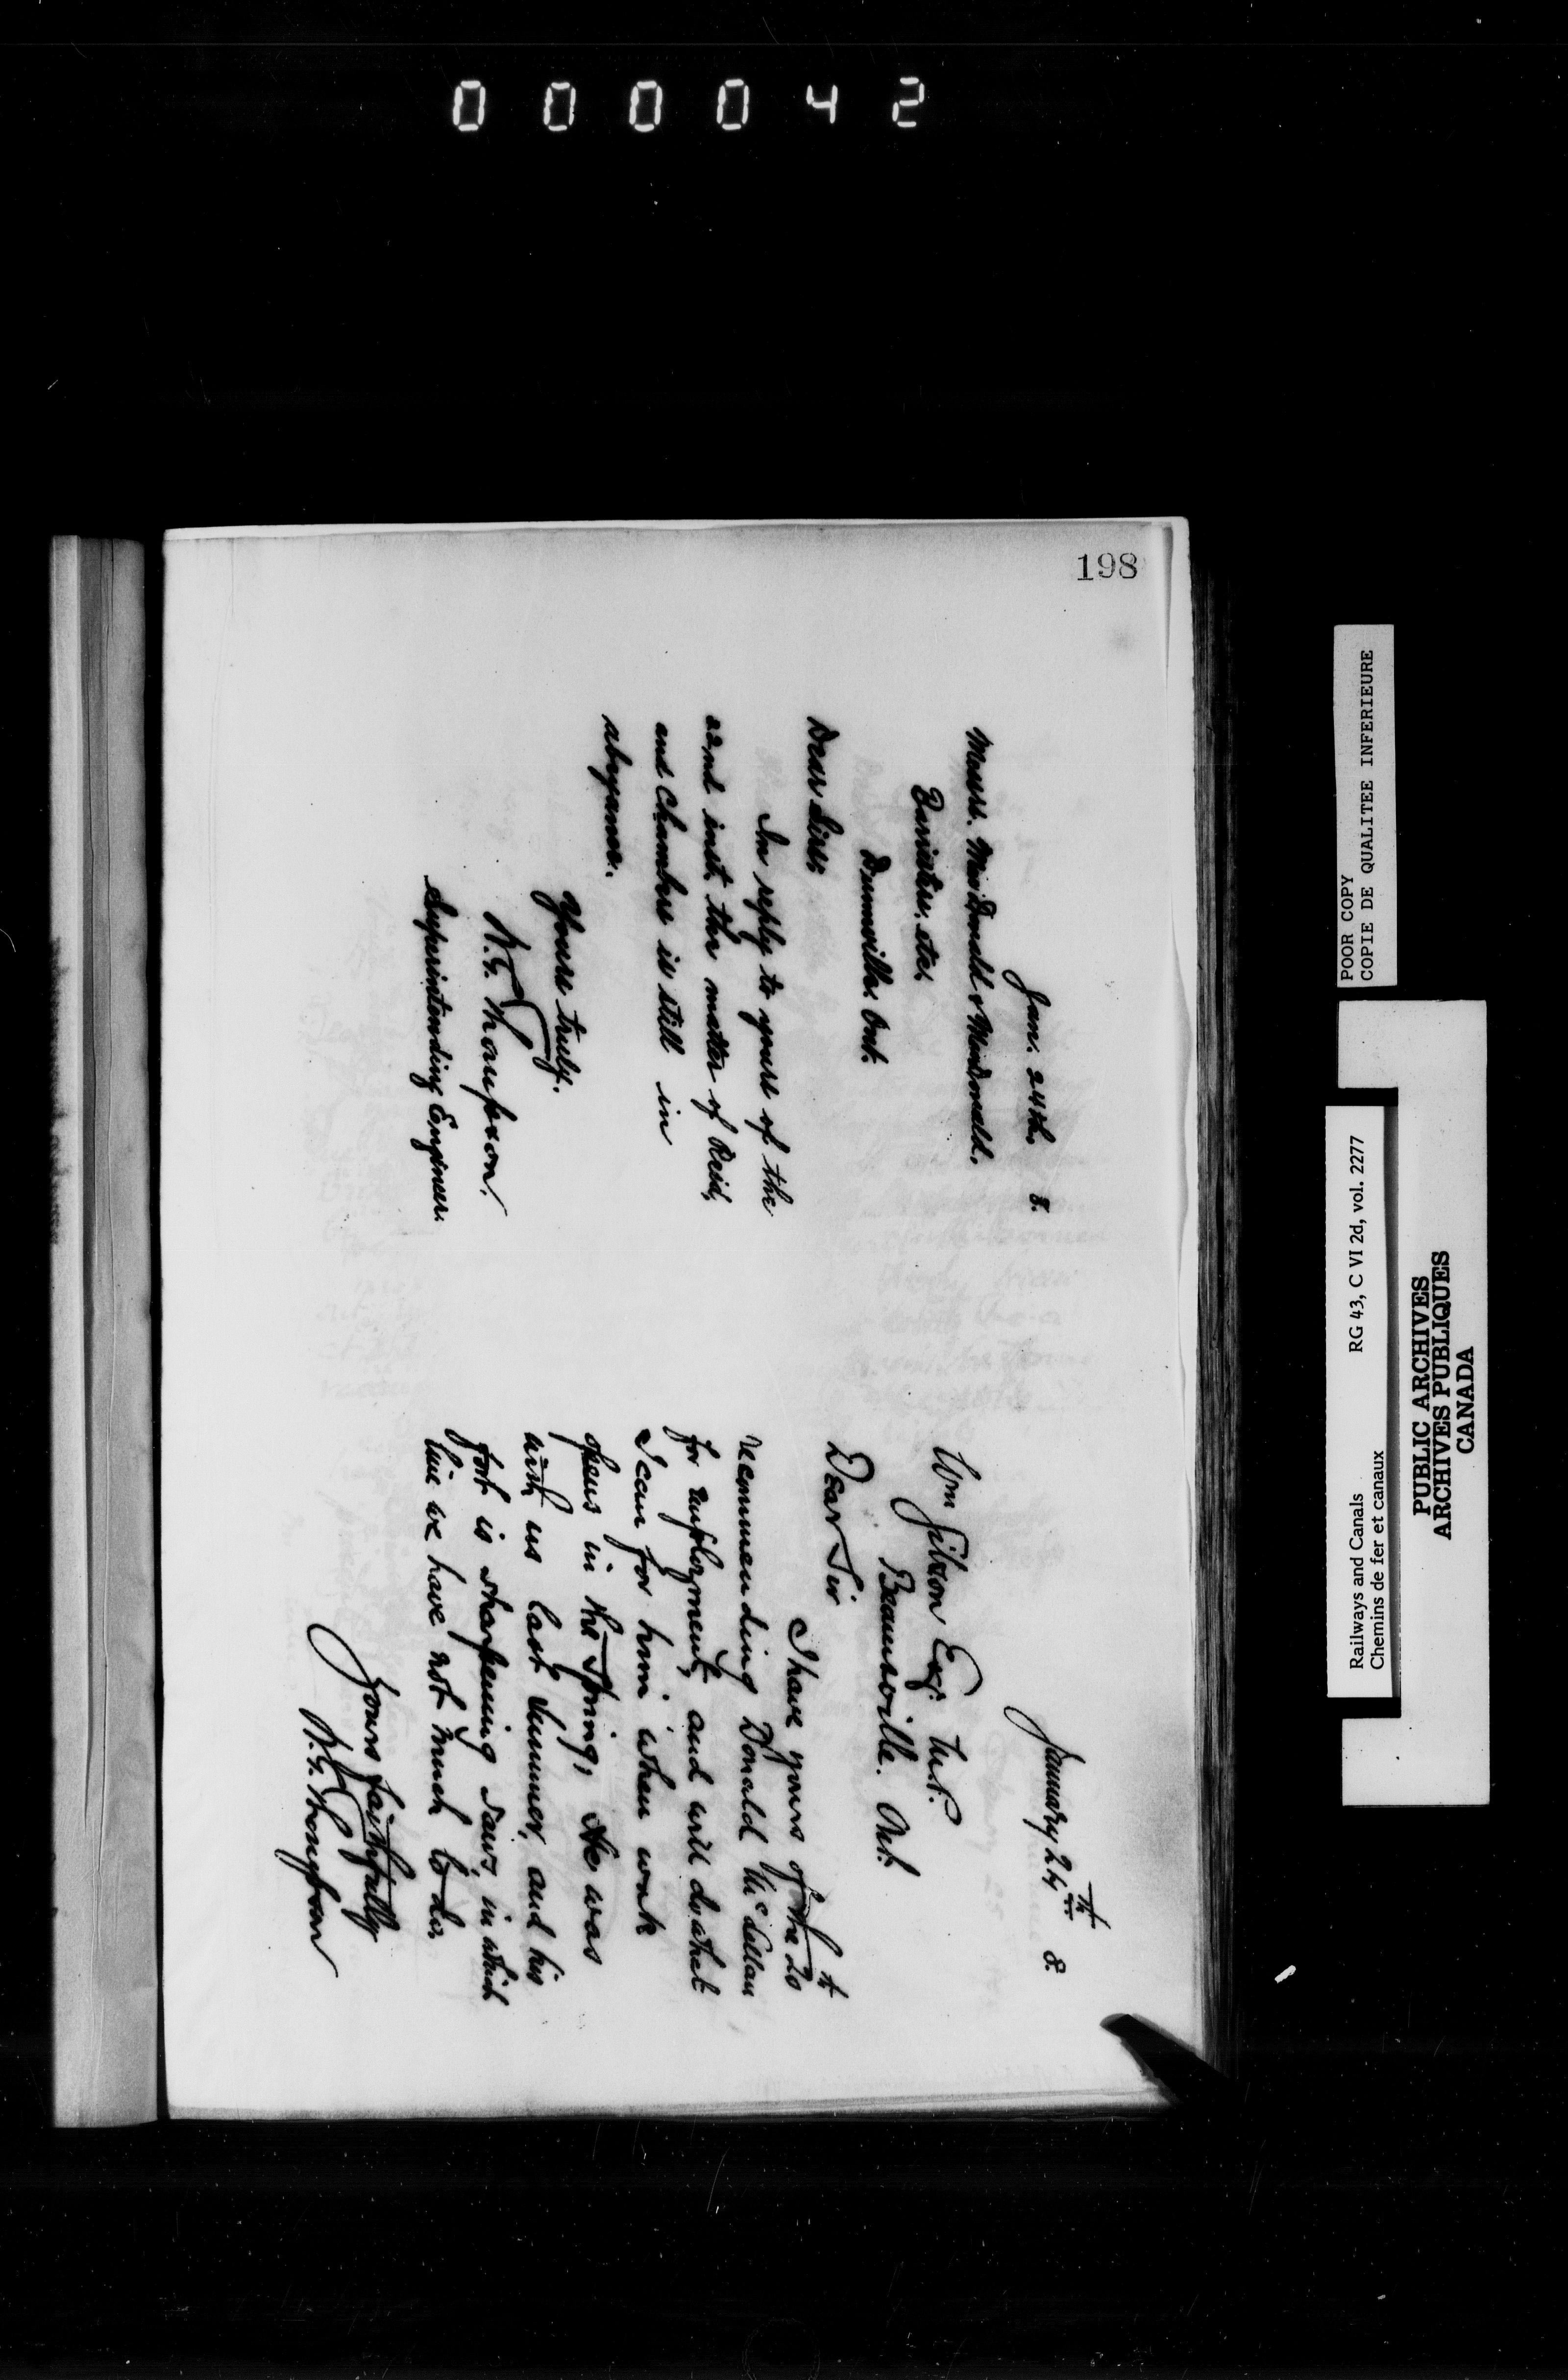 000042
198
Jan. 24th. 8.
Messrs. MacDonald & MacDonald.
Barristers, etc.
Dunnville. Ont.
Dear Sirs:
In reply to yours of the
22nd inst. the matter of Reid,
and Chambers is still in
abeyance.
Yours truly.
W.G. Thompson.
Superintending Engineer.
January 24th 8.
Wm Gibson Esq. M.P.
Beamsville. Ont.
Dear Sir
I have yours of the 20th
recommending Donald McLellan
for employment, and will do what
I can for him when work
opens in the Spring, He was
with us last Summer, and his
fort is sharpening saws, in which
line we have not much to do.
Yours faithfully
W.G. Thompson
POOR COPY
COPIE DE QUALITEE INFERIEURE
Railways and Canals RG 43, C VI 2d, vol. 2277
Chemins de fer et canaux
PUBLIC ARCHIVES
ARCHIVES PUBLIQUES
CANADA